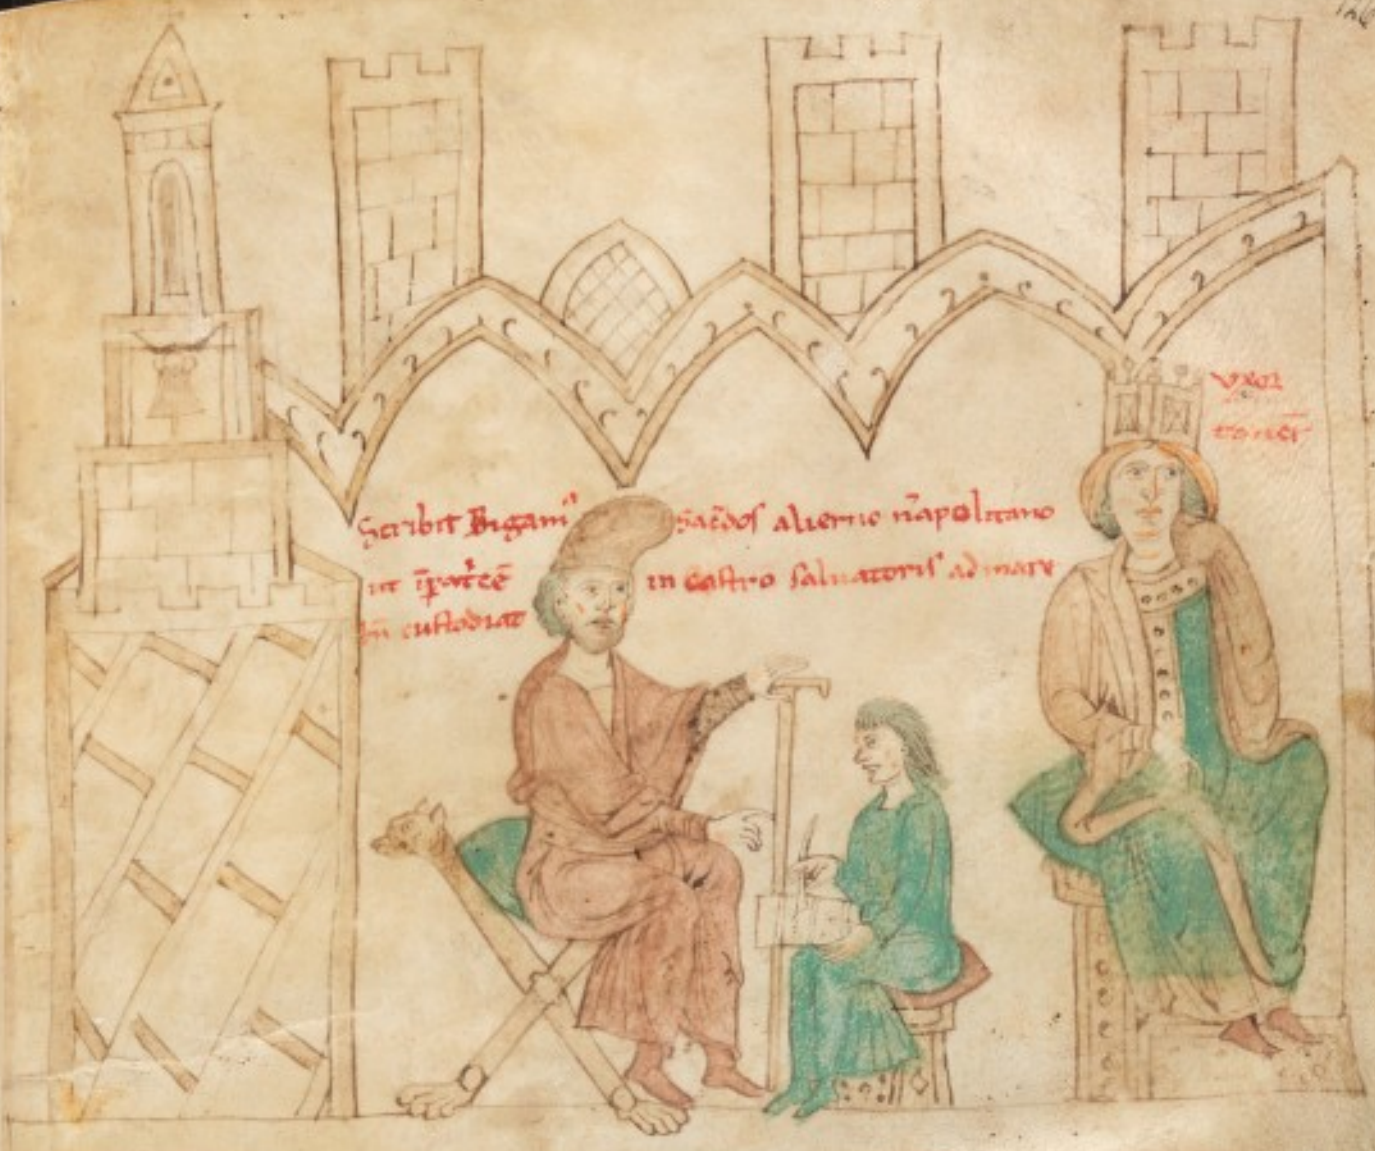 Scribit Bigamꝰ Sac̄dos alierno n̄apolitano
ut īpat͛cē in Castro saluatoris ad mare
bn̄ custodiat
Vxor